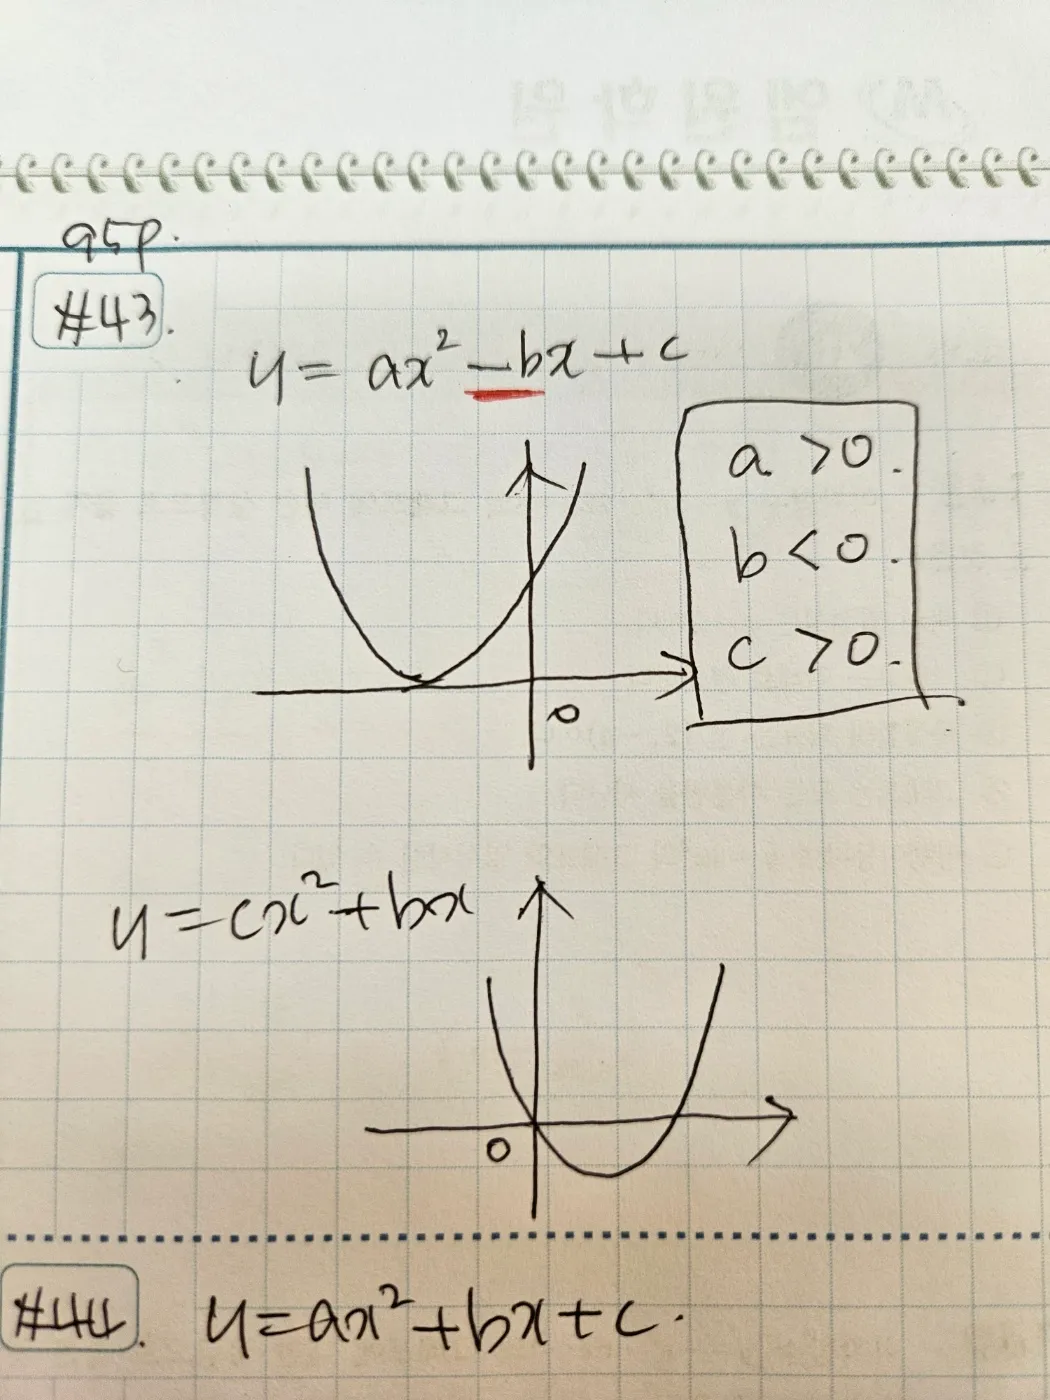 95p.
#43.
y = ax² - bx + c
a > 0.
b < 0.
c > 0.
0
y = cx² + bx
0
#44. y = ax² + bx + c.